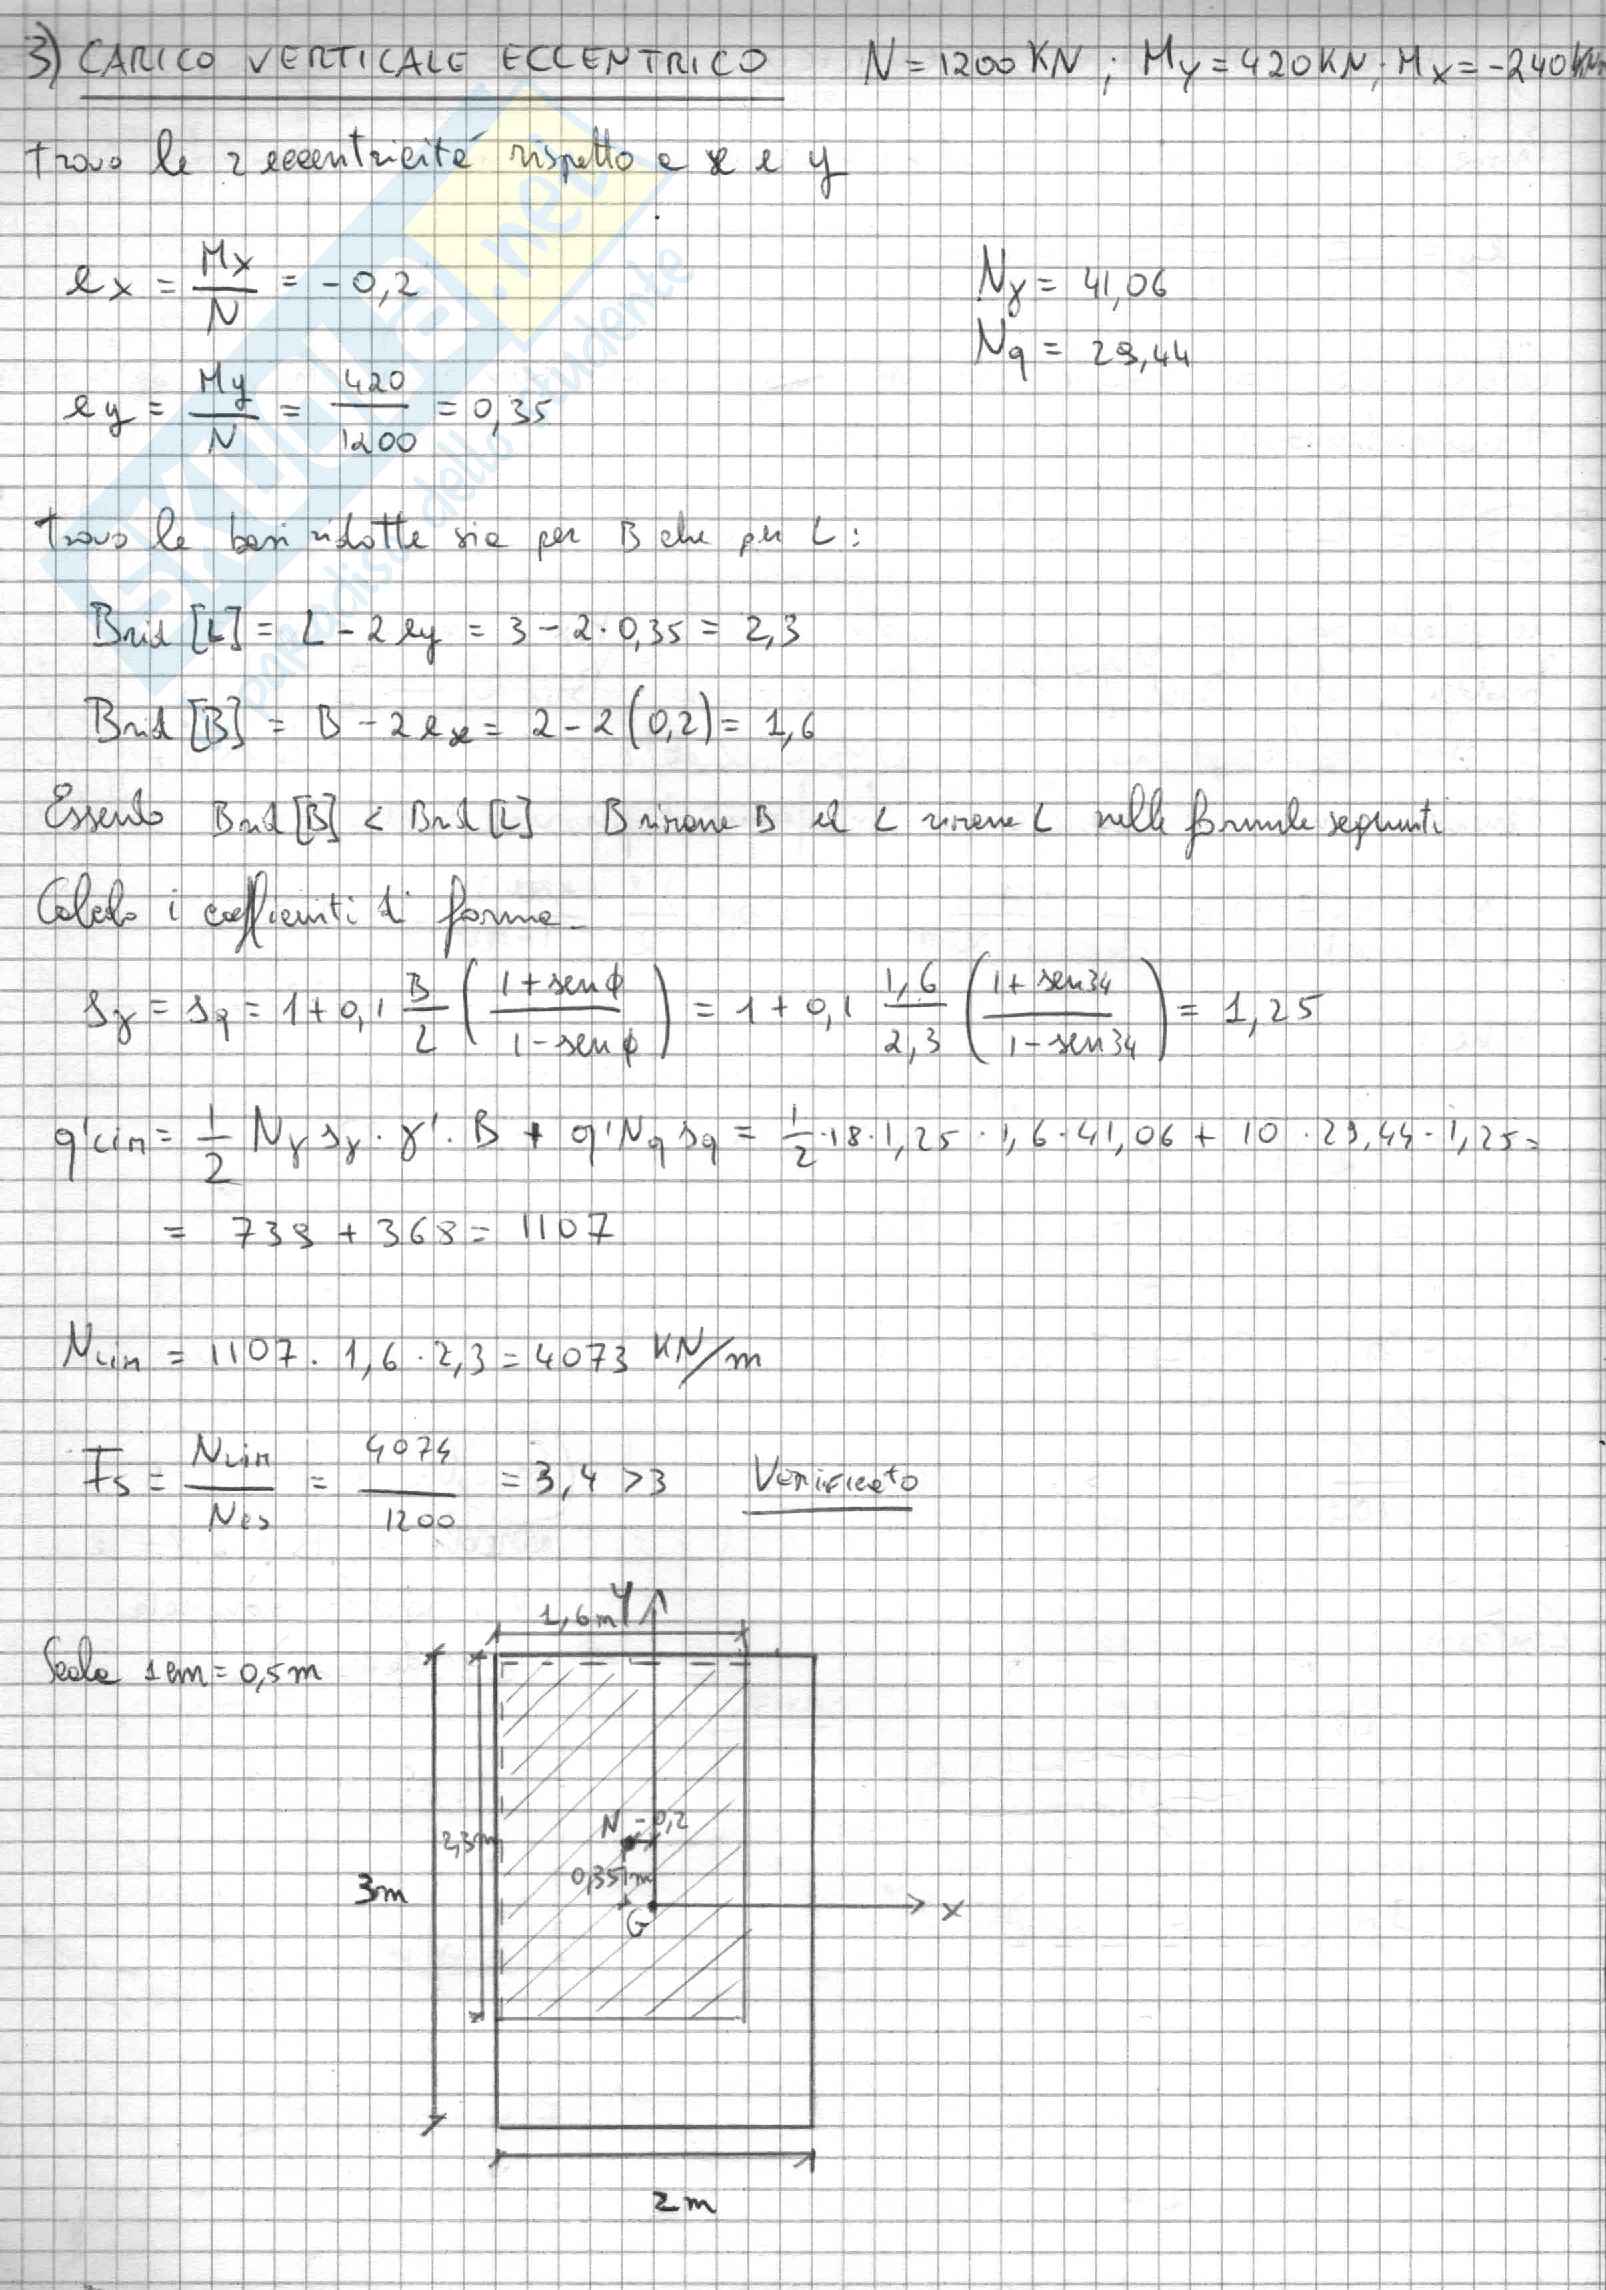 3) CARICO VERTICALE ECCENTRICO N = 1200 KN ; My = 420 KN ; Mx = -240 KNm
Trovo le 2 eccentricità rispetto a x e y
ex = Mx/N = -0,2
Nγ = 41,06
Nq = 29,44
ey = My/N = 420/1200 = 0,35
Trovo le basi ridotte sia per B che per L:
Brid [L] = L - 2 ey = 3 - 2·0,35 = 2,3
Brid [B] = B - 2 ex = 2 - 2 (0,2) = 1,6
Essendo Brid [B] < Brid [L] B rimane B ed L rimane L nelle formule seguenti
Calcolo i coefficienti di forma
sγ = sq = 1 + 0,1 B/L (1 + sen ϕ / 1 - sen ϕ) = 1 + 0,1 1,6/2,3 (1 + sen 34 / 1 - sen 34) = 1,25
q'lim = 1/2 Nγ sγ · γ' · B + q' Nq sq = 1/2 · 18 · 1,25 · 1,6 · 41,06 + 10 · 29,44 · 1,25 =
= 739 + 368 = 1107
Nlim = 1107 · 1,6 · 2,3 = 4073 KN/m
Fs = Nlim/Nes = 4074/1200 = 3,4 > 3 Verificato
Scala 1 cm = 0,5 m
1,6 m
y
2,3 m
N -0,2
0,35 m
3 m
G
x
2 m
SKUOLA.net
paradiso dello studente